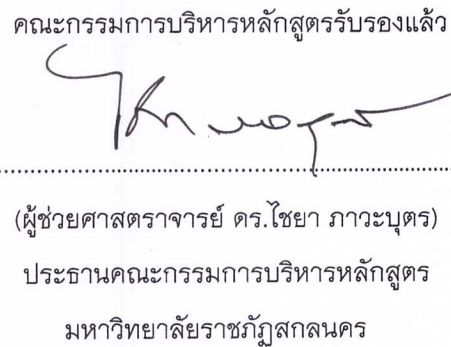 คณะกรรมการบริหารหลักสูตรรับรองแล้ว
(ผู้ช่วยศาสตราจารย์ ดร.ไชยา ภาวะบุตร)
ประธานคณะกรรมการบริหารหลักสูตร
มหาวิทยาลัยราชภัฏสกลนคร